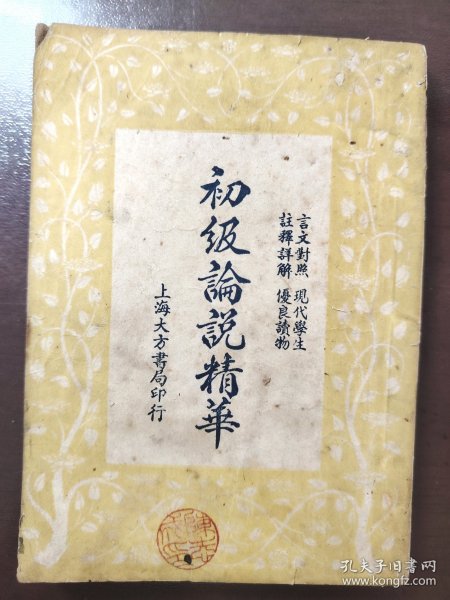 言文對照 現代學生
註釋詳解 優良讀物
初級論説精華
上海大方書局印行
孔夫子旧书网
www.kongfz.com